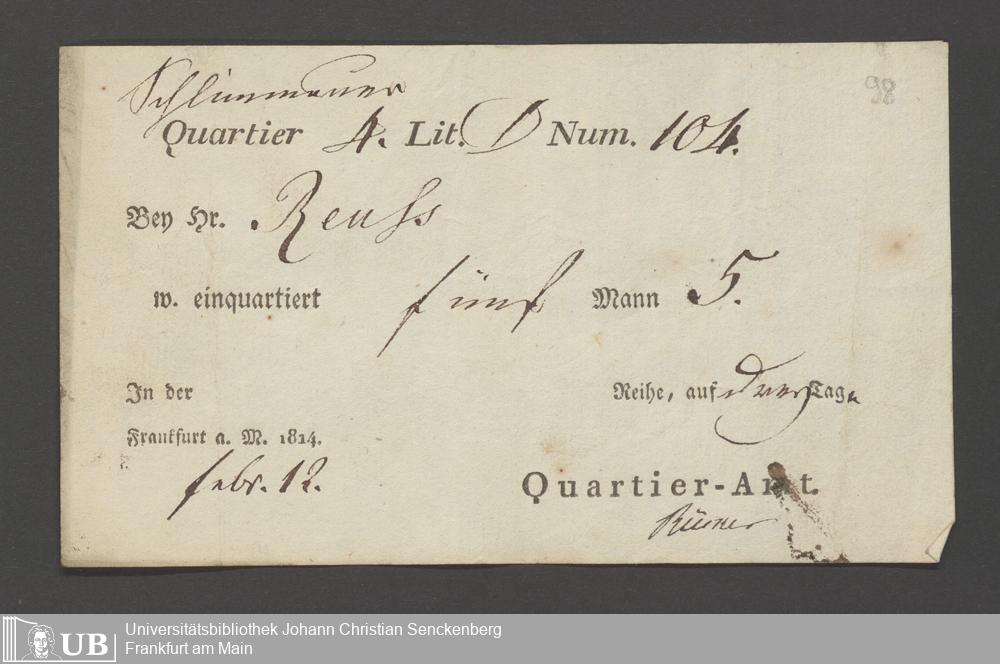 98
Quartier 4. Lit. D Num. 104.
Bey Hr. Reuss
w. einquartiert fünf Mann 5.
In der Reihe, auf drey Tage
Frankfurt a. M. 1814.
febr. 12.
Quartier-Amt.
UB Universitätsbibliothek Johann Christian Senckenberg
Frankfurt am Main